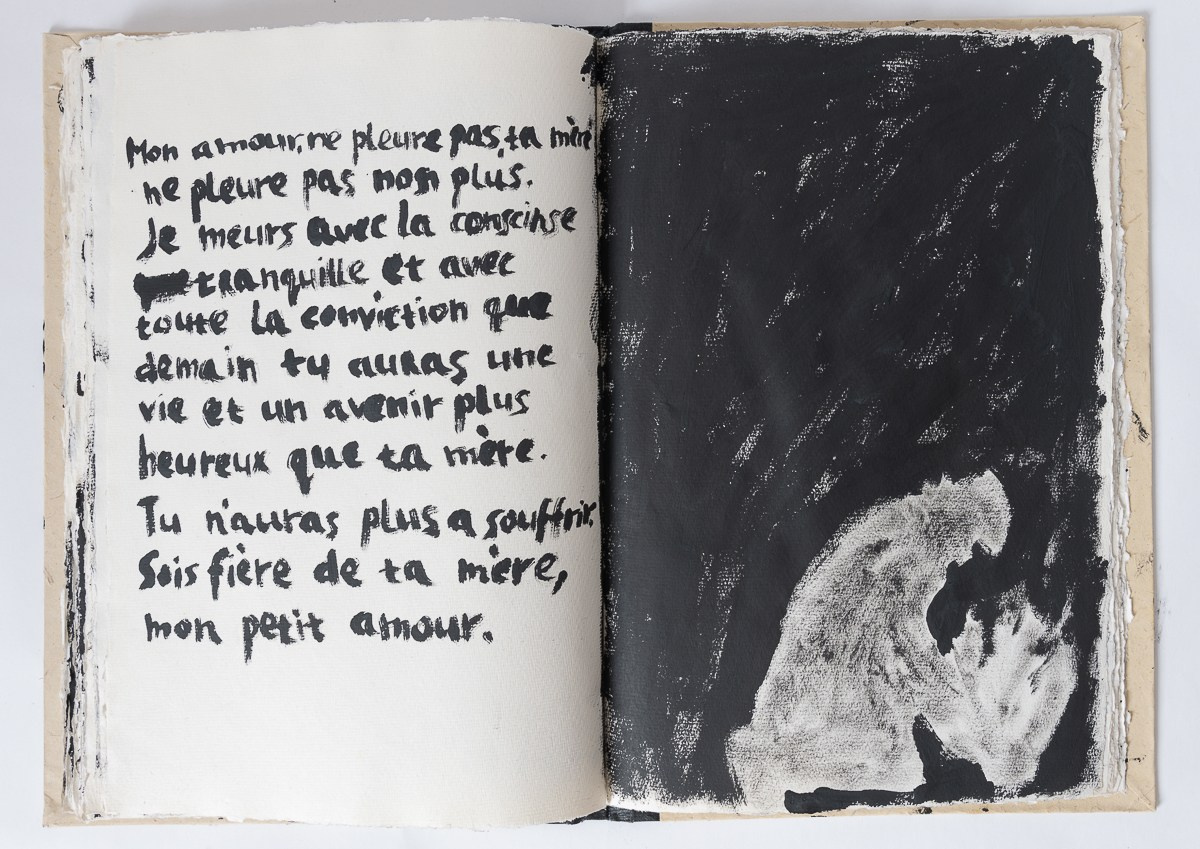 Mon amour, ne pleure pas, ta mère
ne pleure pas non plus.
Je meurs avec la conscinse
tranquille et avec
toute la conviction que
demain tu auras une
vie et un avenir plus
heureux que ta mère.
Tu n'auras plus a souffrir.
Sois fière de ta mère,
mon petit amour.